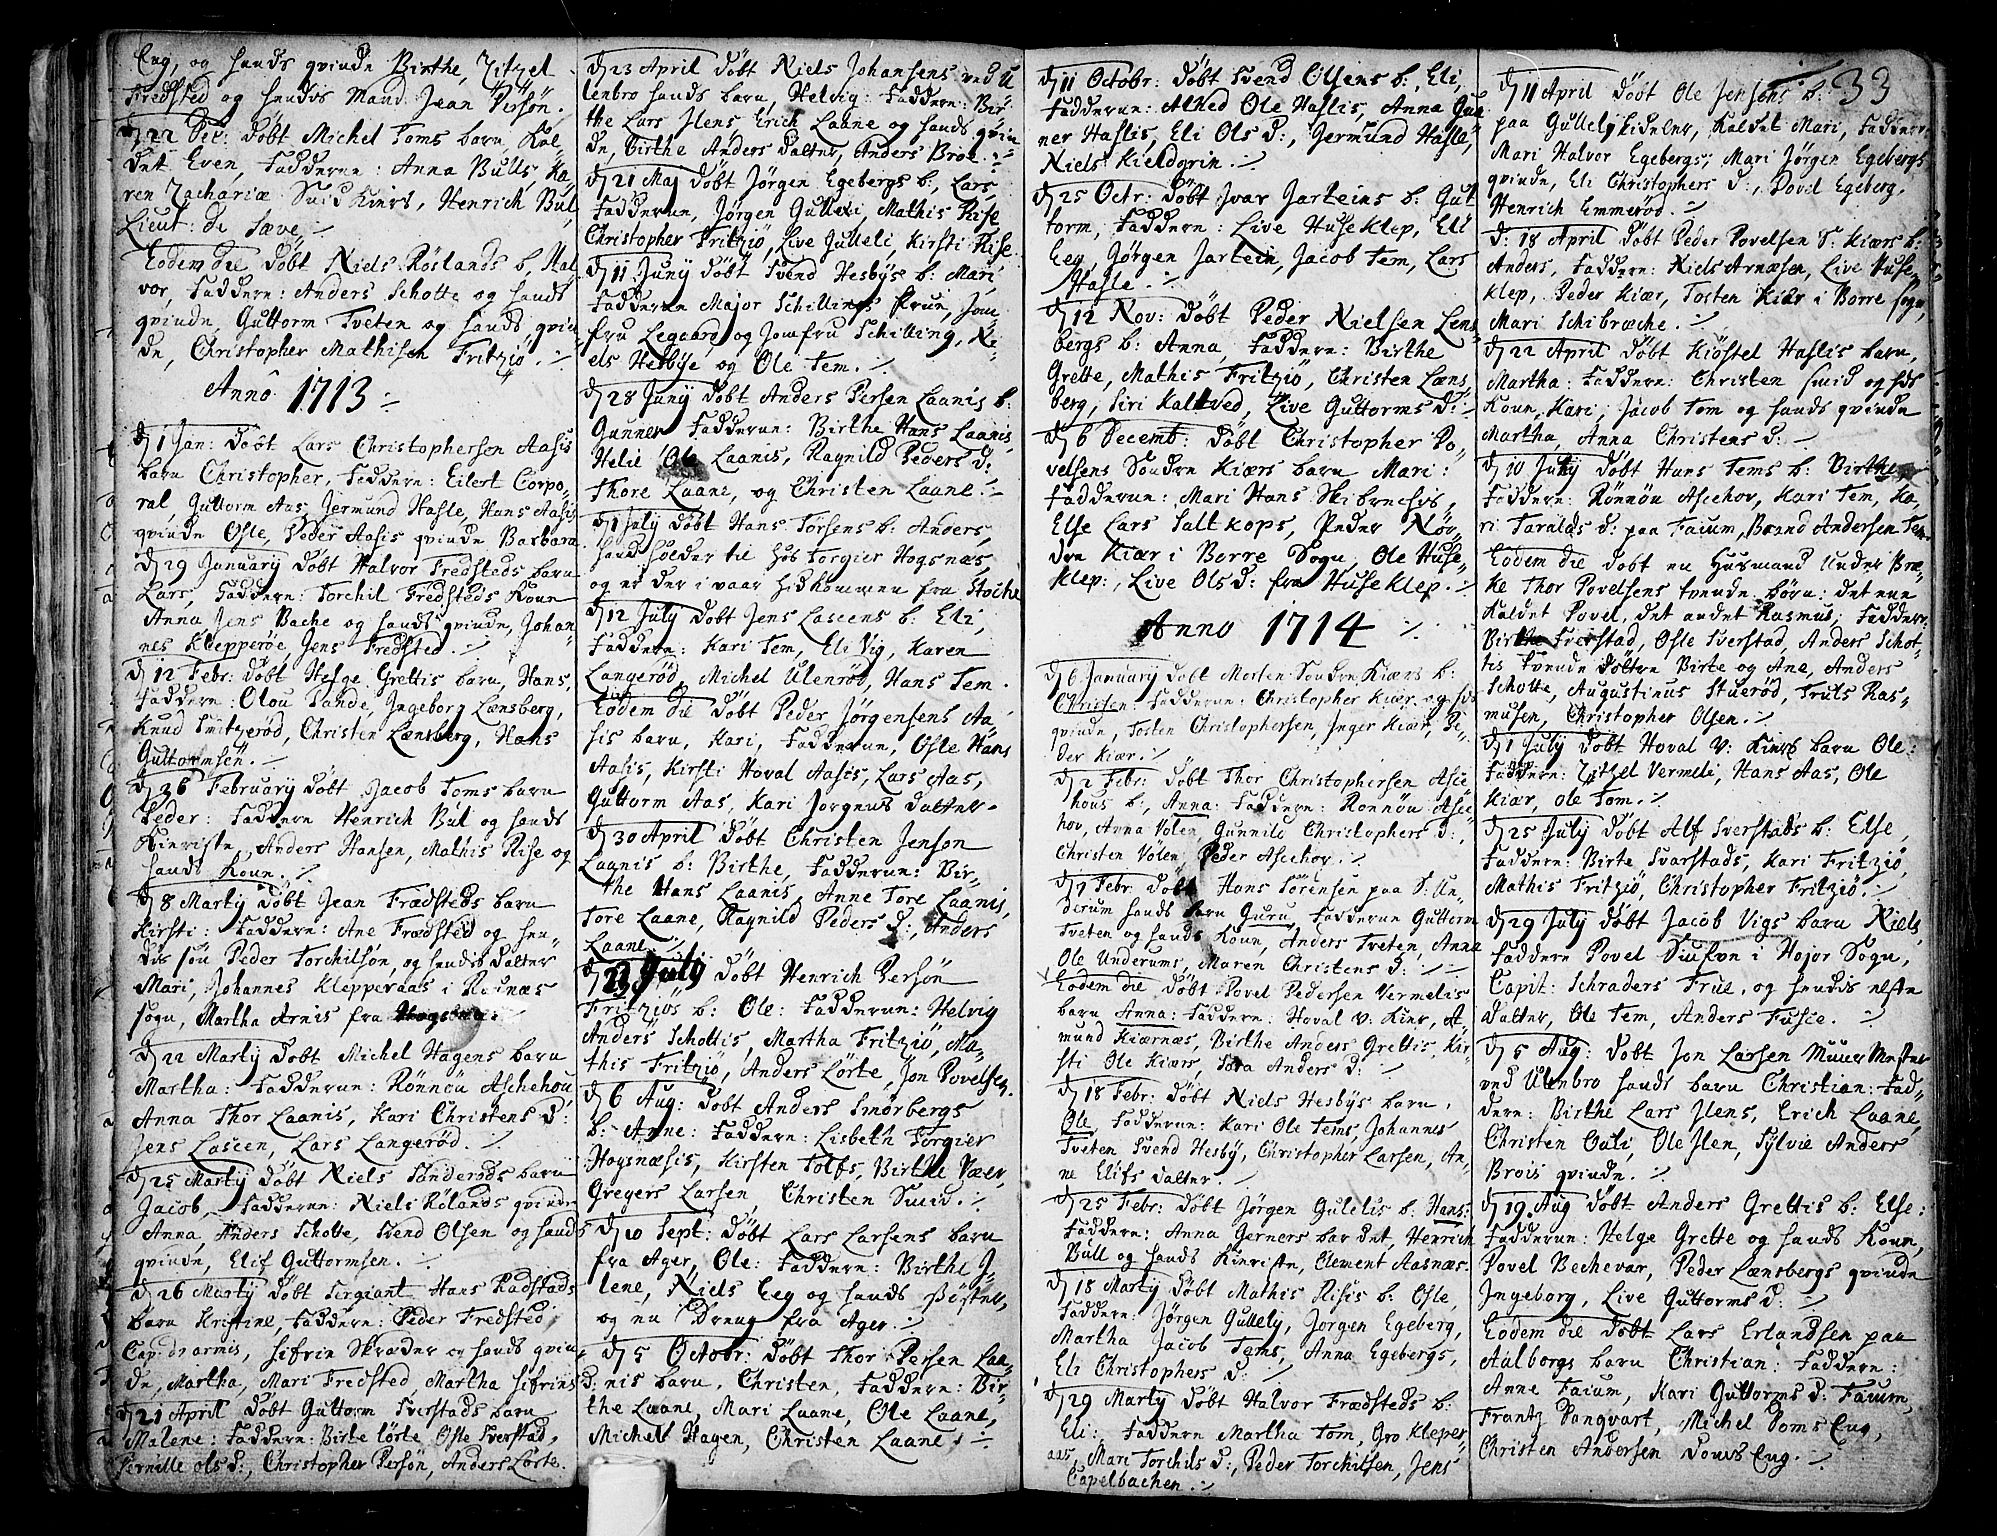 Eng, og hands qvinde Birthe, Zitzel
Fredsted og hendis Mand Jean Persön.
d 22 Dec: döbt Michel Toms barn, Kal-
det Even, Faddere: Anna Bulls Ka-
ren Zachariæ Smid Kiers, Henrich Bul,
Lieut: de Sæve
Eodem die döbt Niels Röslands b, Hal
vor, Faddere: Anders Schotte og hands
qvinde, Guttorm Tveten og hands qvin
de, Christopher Mathisen Fritziö.
Anno 1713
d 1 Jan: döbt Lars Christophersen Aasis
barn Christopher, Faddere: Eilert Corpo-
ral, Guttorm Aas, Jermund Hasle, Hans Aasis
qvinde Osle, Peder Aasis qvinde Barbara
d 29 January döbt Halvor Fredsteds barn
Lars, Faddere: Torchil Fredsteds Koun
Anna Jens Bache og hands qvinde, Johan-
nes Klepperöe, Jens Fredsted.
d 12 Febr: döbt Helge Grettis barn, Hans,
Faddere: Olou Pande, Ingeborg Lænsberg,
Knud Smitzeröd, Christen Lænsberg, Hans
Guttormsön.
d 26 February döbt Jacob Toms barn
Peder: Faddere Henrich Bul og hands
Kieriste, Anders Hansen, Mathis Rise og
hands Koun.
d 8 Marty döbt Jean Frædsteds barn
Kirsti: Faddere: Ane Frædsted og hen-
dis sön Peder Torchilsön, og hendis datter
Mari, Johannes Klepperaas i Rounæs
sogn, Martha Arnis fra
d 22 Marty döbt Michel Hagens barn
Martha: Fadderne: Rönnöu Aschehou,
Anna Thor Laanis, Kari Christens d:
Jens Lascen, Lars Langeröd.
d 25 Marty döbt Niels Sonderöds barn
Jacob, Fadderne: Niels Rölands qvinde
Anna, Anders Schotte, Svend Olsen og hands
qvinde, Elif Guttormsen.
d 26 Marty döbt Sirgiant Hans Radstads
barn Kristine, Faddere: Peder Fredsted,
Cap: d armis, Sifrin Skrader og hands qvin
de, Martha, Mari Fredsted, Martha Sifrins d:
d 21 April döbt Guttorm Sverstads barn
Malene: Faddere: Birte lörte Osle Sverstad,
Pernille Ols d:, Christopher Persön, Anders Lörte.
d 23 April döbt Niels Johansens ved U
lenbro hands barn, Helvig: Faddere: Bir-
the Lars Ilens Erich Laane og hands qvin
de, Birthe Anders datter, Anders Broe.
d 21 Maj döbt Jörgen Egebergs b:, Lars
Fadderne, Jörgen Gulleli, Mathis Rise
Christopher Fritziö, Live Gulleli, Kirsti Rise
d 11 Juny döbt Svend Hesbys b: Mari,
Fadderne Major Schillings Frue, Jom
fru Legaard og Jomfru Schilling, Ni-
els Hesbye og Ole Tem.
d 28 Juny döbt Anders Persen Laanis b:
Gunner Fadderne: Birthe Hans Laanis
Helie Ole Laanis, Ragnild Peders d:
Thore Laane, og Christen Laane
d 1 July döbt Hans Torsens b: Anders,
hand holder til hos Torgier Hogsnæs,
og er der i vaar hidkommen fra Stocke
d 12 July döbt Jens Lascens b: Eli,
Faddere: Kari Tem, Eli Vig, Karen
Langeröd, Michel Ulenröd, Hans Tem.
Eodem die döbt Peder Jörgensens Aa-
sis barn, Kari, Fadderne, Osle Hans
Aasis, Kirsti Hoval Aasis, Lars Aas,
Guttorm Aas, Kari Jörgens datter
d 30 April döbt Christen Jenson
Laanis b: Birthe, Fadderne: Bir-
the Hans Laanis, Anne Tore Laanis,
Tore Laane, Ragnild Peders d:, Anders
Laane
d 23 July döbt Henrich Persön
Fritziös b: Ole: Fadderne: Helvig
Anders Schottis, Martha Fritziö, Ma-
this Fritziö, Anders Lörte, Jon Povelsen
d 6 Aug: döbt Anders Smörbergs
b: Anne: Faddere: Lisbeth Torgier
Hogsnæsis, Kirsten Tolfs, Birthe Væer
Gregers Larsen, Christen Smid.
d 10 Sept: döbt Lars Larsens barn
fra Ager, Ole: Faddere: Birthe I-
lene, Niels Eeg og hands Söster,
og en Dreng fra Ager
d 5 Octobr: döbt Thor Persen Laa-
nis barn, Christen, Faddere: Bir-
the Laane, Mari Laane, Ole Laane,
Michel Hagen, Christen Laane
d 11 Octobr: döbt Svend Olsens b:, Eli,
Fadderne: Alhed Ole Haslis, Anna Gun
ner Haslis, Eli Ols d:, Jermund Hasle,
Niels Kieldgrin.
d 25 Octr: döbt Ivar Jarteins b: Gut
torm, Faddere: Live Huseklep, Eli
Eeg, Jörgen Jartein, Jacob Tem, Lars
Hasle.
d 12 Nov: döbt Peder Nielsen Lens
bergs b: Anna, Faddere: Birthe
Grette, Mathis Fritziö, Christen Læns
berg, Siri Kaltved, Live Guttorms d:
d 6 Decemb: döbt Christopher Po-
velsens Söndre Kiærs barn Mari:
Fadderne: Mari Hans Skibrechis
Else Lars Saltkops, Peder Nör-
dre Kiær i Borre Sogn, Ole Huse
klep:, Live Ols d: fra Huseklep.
Anno 1714
d 6 January döbt Morten Söndre Kiærs b:
Christen Fadderne: Christopher Kiær, og hds
qvinde, Tosten Christophersen, Inger Kiær, Pe-
der Kiær.
d 2 Febr: döbt Thor Christophersen Asce
hous b:, Anna: Faddere: Ronnöu Asce-
hov, Anna Volen Gunnild Christophers d:,
Christen Völen, Peder Ascehov.
d 7 Febr: döbt Hans Sörensen paa S: Un-
derum hands barn Guru, Fadderne Guttorm
Tveten og hands Koun, Anders Tveten, Anna
Ole Underums, Maren Christens d:
Eodem die döbt Povel Pedersen Vermelis
barn Anna: Faddere: Hoval V: Kier, A-
mund Kiærnæs, Birthe Anders Grettis, Kir-
sti Ole Kiærs, Sara Anders d:
d 18 Febr: döbt Niels Hesbys barn,
Ole, Fadderne: Kari Ole Tems, Johannes
Tveten Svend Hesby, Christopher Larsen, An-
ne Elifs datter.
d 25 Febr: döbt Jörgen Gulelis b: Hans:
Faddere: Anna Gerners bar det, Henrich
Bull og hands Kieriste, Clement Aasnæs.
d 18 Marty döbt Mathis Risis b: Osle,
Faddere: Jörgen Gullely, Jörgen Egeberg,
Martha Jacob Tems, Anna Egebergs,
Eli Christophers d:
d 29 Marty döbt Halvor Frædsteds b:
Eli: Faddere Martha Tom, Gro Kleper-
aas, Mari Torchils d:, Peder Torchilsen, Jens
Capelbachen.
33
d 11 April döbt Ole Jensens b:
paa Gullely Kidelne, kaldet Mari, Faddere
Mari Halvor Egebergs, Mari Jörgen Egebergs
qvinde, Eli Christophers d:, Povil Egeberg,
Henrich Emmeröd.
d: 18 April döbt Peder Povelsen S: Kiærs b:
Anders, Faddere: Niels Arnæsen, Live Huse-
klep, Peder Kiær, Tosten Kiær i Borre sogn,
Mari Schibræche.
d 22 April döbt Kiöstel Haslis barn,
Martha: Faddere: Christen Smid og hds
Koun, Kari, Jacob Tom og hands qvinde
Martha, Anna Christens d:
d 10 July döbt Hans Tems b: Birthe
Faddere: Rönnöu Ascehov, Kari Tem, Ka-
ri Taralds d: paa Faium, Brand Andersen Tem
Eodem die döbt en Husmand under Bræ-
ke Thor Povelsens tvende börn: det ene
kaldet Povel, det andet Rasmus, Faddere
Birthe Sverstad, Osle Sverstad, Anders Schot-
tis tvende döttre Birte og Ane, Anders
Schotte, Augustinus Stueröd, Truls Ras-
musen, Christopher Olsen.
d 1 July döbt Hoval V: Kiers barn Ole:
Faddere: Zitzel Vermeli, Hans Aas, Ole
Kiær, Ole Tom.
d 25 July döbt Alf Sverstads b: Else,
Faddere: Birte Svarstads, Kari Fritziö,
Mathis Fritziö, Christopher Fritziö.
d 29 July döbt Jacob Vigs barn Niels,
Faddere Povel i Hojor Sogn,
Capit: Schraders Frue, og hendis elste
datter, Ole Tem, Anders Fusce.
d 5 Aug: döbt Jon Larsen Muur Mester
ved Ulenbro hands barn Christian: Fad-
dere: Birthe Lars Ilens, Erich Laane,
Christen Ouli, Ole Ilen, Sylvie Anders
Brois qvinde.
d 19 Aug döbt Anders Grettis b: Else:
Fadderne: Helge Grette og hands Koun,
Povel Bechevar, Peder Lænsbergs qvinde
Ingeborg, Live Guttorms d:
Eodem die döbt Lars Erlandsen paa
Aalborgs barn Christian: Faddere:
Anne Faium, Kari Guttorms d: Faium,
Frantz Dangvart, Michel Doms Eng,
Christen Andersen Doms Eng.